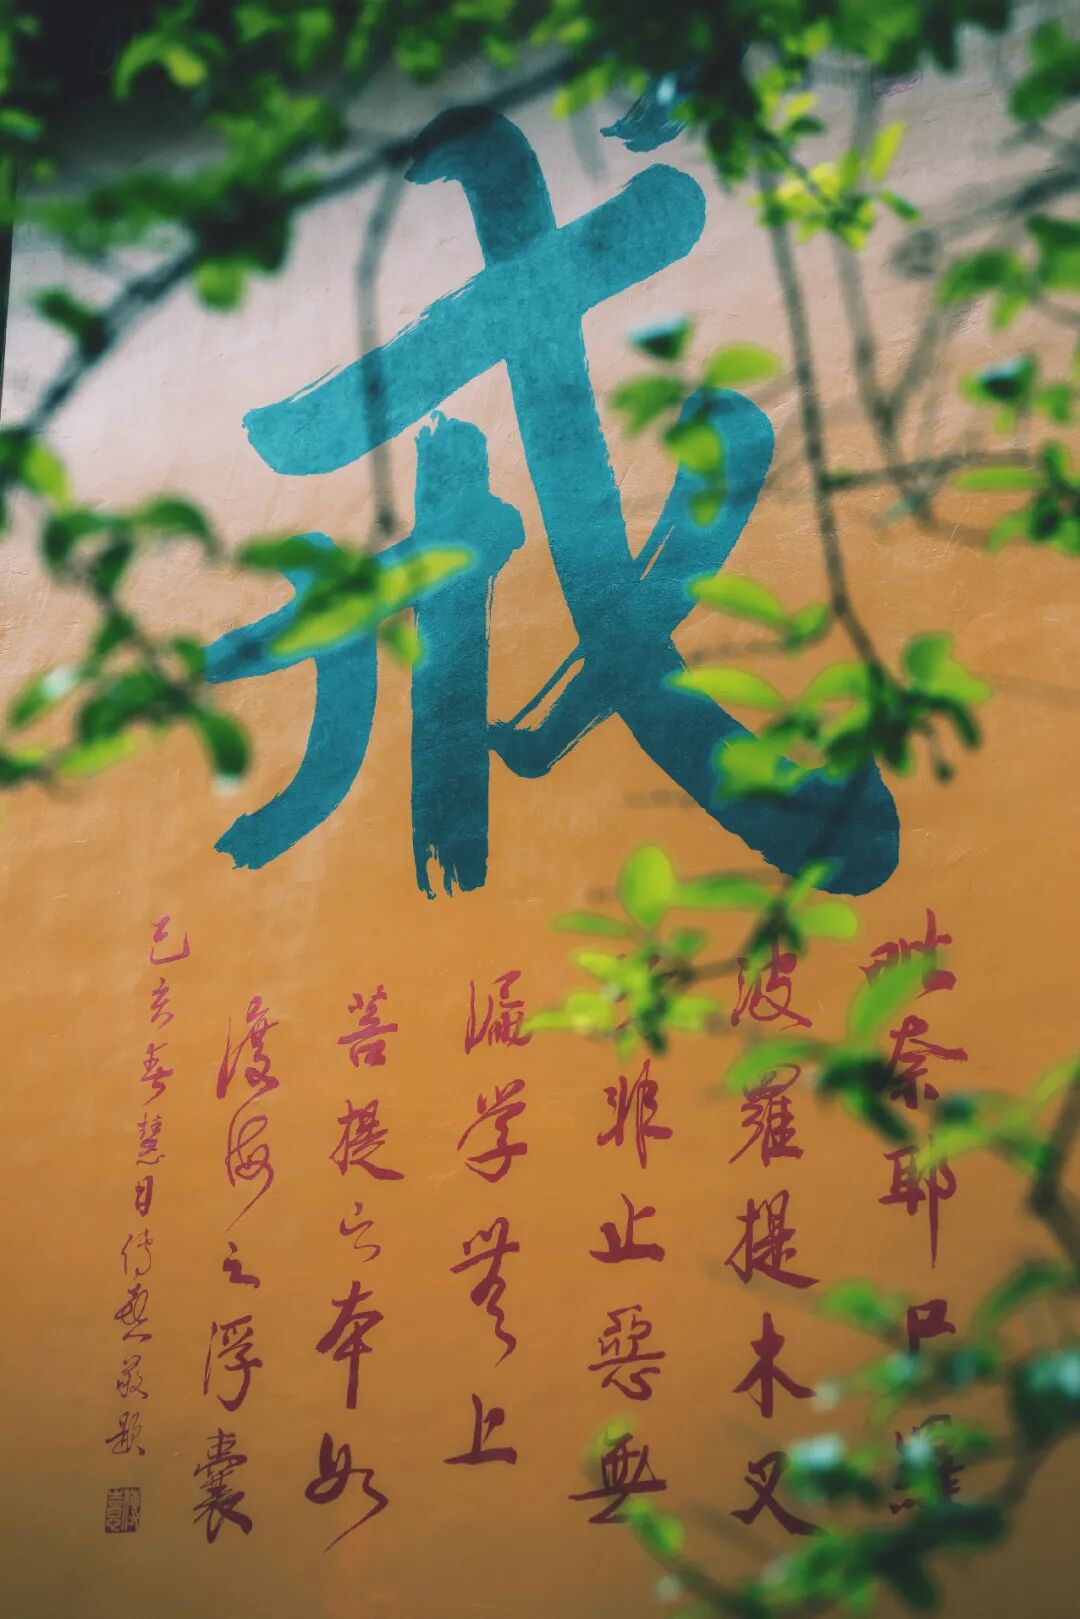 戒
毗奈耶尸羅
波羅提木叉
非止惡無
漏学無上
菩提之本如
渡海之浮囊
己亥春慧日傳意敬題